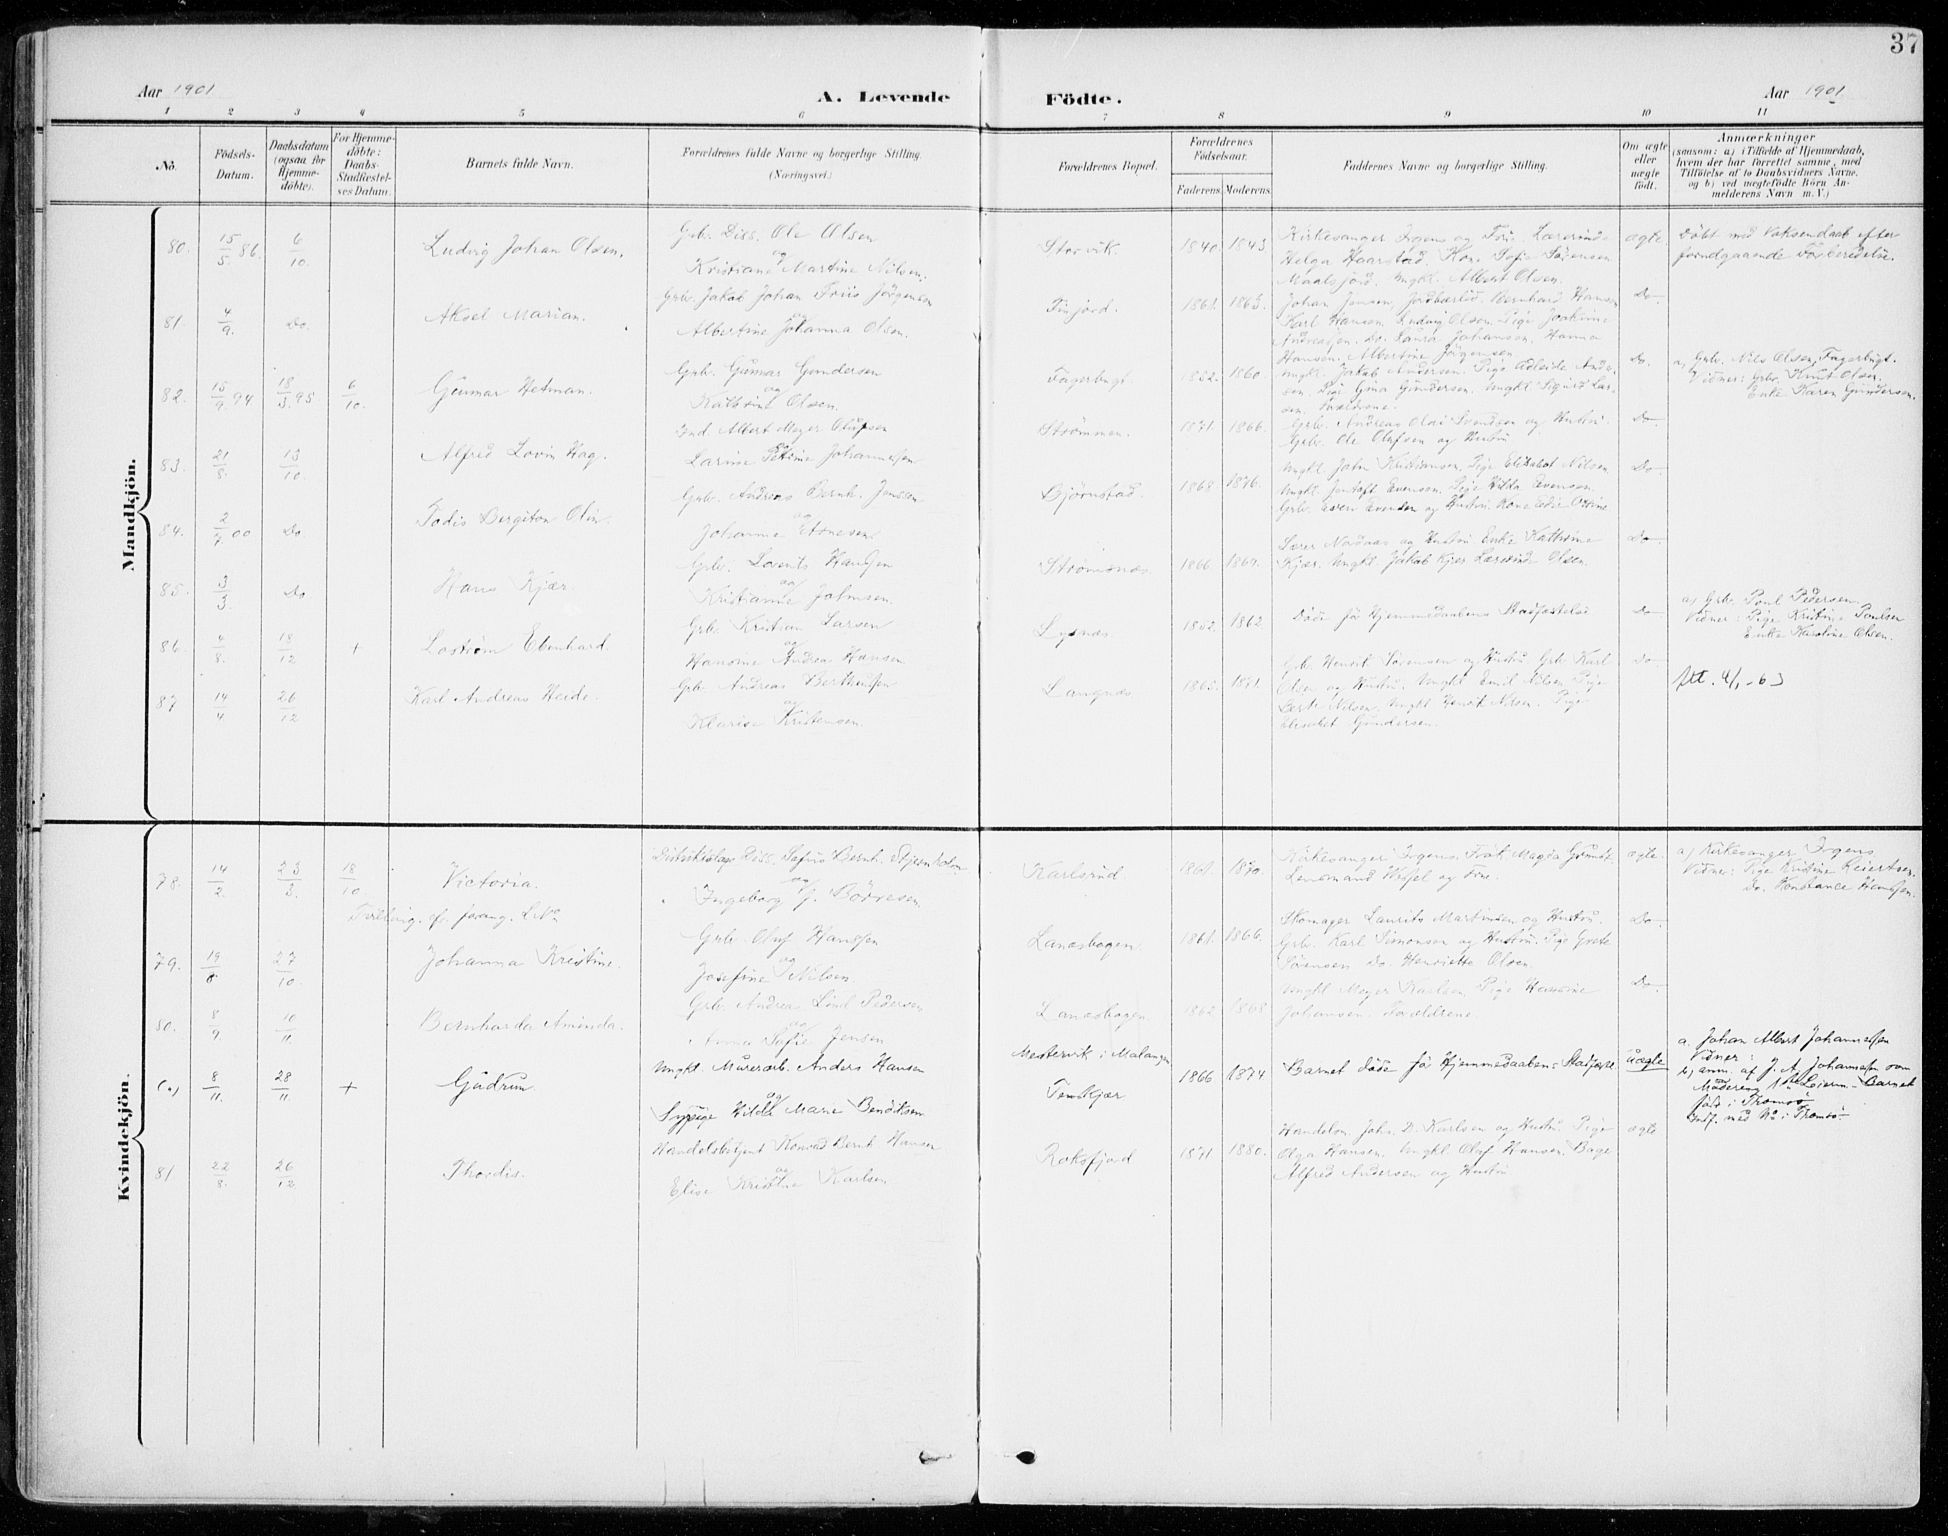 37
Aar 1901
A. Levende
Födte.
Aar 1901
1 2 3 4 5 6 7 8 9 10 11
No.
Födsels-
Datum.
Daabsdatum
(ogsaa for
Hjemme-
döbte).
For Hjemme-
döbte:
Daabs-
Stadfæstel-
ses Datum.
Barnets fulde Navn.
Forældrenes fulde Navne og borgerlige Stilling.
(Næringsvei.)
Forældrenes Bopæl.
Forældrenes
Födselsaar.
Faderens.
Moderens.
Faddernes Navne og borgerlige Stilling.
Om ægte
eller
uægte
födt.
Anmærkninger
(saasom: a) i Tilfælde af Hjemmedaab,
hvem der har forrettet samme, med
Tilföielse af to Daabsvidners Navne,
og b) ved uægtefödte Börn An-
melderens Navn m. V.)
Mandkjön.
80. 15/5 86 6/10
Ludvig Johan Olsen.
Grb. Diss. Ole Olsen
og
Kristiane Martine Nilsen.
Storvik. 1840. 1843
Kirkesanger Irgens og Frue. Lærerinde
Helga Haarstad. Kon. Sofie Sørensen
Maalsjord. Ungkl. Albert Olsen.
ægte.
Döbt med Voksendaab efter
forudgaaende Forberedelse.
81. 4/9. Do.
Aksel Marian.
Grb. Jakob Johan Friis Jörgensen
og
Albertine Johanna Olsen.
Finjord. 1861. 1865.
Johan Jensen, Bernhard Hansen
Karl Hansen. Ludvig Olsen. Pige
Andreasen. Do. Laura Johansen. Hanna
Hansen. Albertine Jörgensen.
Do.
82. 15/9 94 18/3 95 6/10.
Gunnar Hetman.
Grb. Gunnar Gundersen
og
Kathrine Olsen.
Fagerbugt. 1852. 1860
Ungkl. Jakob Andersen. Pige Adleide Ande-
sen. Pige Gina Gundersen. Ungkl. Sigurd Lar-
sen. Forældrene.
Do.
a, Grb. Nils Olsen, Fagerbugt.
Vidner: Grb. Knut Olsen.
Enke Karen Gundersen.
83. 21/8 13/10
Alfred Lovin Hag.
Ind. Albert Meyer Olufsen
og
Larine Petrine Johannesen
Strømmen. 1871. 1866.
Grb. Andreas Olai Svendsen og Hustru.
Grb. Ole Olufsen og Hustru
Do.
84. 2/7 00 Do
Todis Bergiton Olin.
Grb. Andreas Bernh. Jenssen
og
Johanna
Bjørnstad. 1868. 1876.
Ungkl. John Kristiansen, Pige Elisabet Nilsen
Ungkl. Jentoft Evensen. Pige Hilda Evensen.
Grb. Evensen og Hustru. Kone
Do
85. 3/3. Do
Hans Kjær.
Grb. Lorents Hansen
og
Kristianne Johnsen.
Strømsnæs. 1866 1864.
Lærer Nordnæs og Hustru Enke Kathrine
Kjær. Ungkl. Jakob Kjær Lærerinde Olsen.
Do.
86. 4/8. 18/12 +
Lostrøm Ebenhard
Grb. Kristian Larsen
og
Hansine Andrea Hansen
Lysnæs. 1852. 1862
Døde før Hjemmedaabens Stadfæstelse
Do
a, Grb. Poul Pedersen.
Vidner: Pige Kristine Paulsen
Enke Karoline Olsen.
87 14/4 26/12
Karl Andreas Heide.
Grb. Andreas Bertheusen
og
Klarise Kristensen.
Langnæs 1865. 1871.
Grb. Henrik Sørensen og Hustru Grb Karl
Olsen og Hustru. Ungkl Emil Nilsen Pige
Berit Nilsen. Ungkl Henrik Nilsen. Pige
Elisabet Gundersen.
Do
Att. 4/1-63
Kvindekjön.
78. 14/2. 23/3. 18/10.
Victoria.
Tvilling. f.
Distriktslæge Diss. Sofus Bernh. Stjernholm
og
Ingeborg J. Börresen
Karlsrud. 1861. 1870.
Kirkesanger Irgens. Frøk. Magda
Lensmand Wessel og Frue.
ægte.
a) Kirkesanger Irgens
Vidner: Pige Kristine Leiertsen.
Do. Konstance Hanssen.
79. 19/8 27/10.
Johanna Kristine.
Grb. Oluf Hanssen
og
Josefine Nilsen
Lanesbogen. 1861. 1866.
Skomager Laurits Martinsen og Hustru.
Grb. Karl Simonsen og Hustru. Pige Grete
Sørensen Do. Henriette Olsen.
Do
80. 8/9. 10/11.
Bernharda Aminda.
Grb. Andrea Lind Pedersen
og
Anna Sofie Jensen
Lanesbogen 1862. 1868
Ungkl Meyer Karlsen, Pige Hansine
Johansen. Forældrene.
Do.
(a) 8/11. 28/11. +
Gudrun.
Ungkl. Murerarb. Anders Hansen
og
Sypige Hilda Marie Bendiksen
Mestervik i Malangen
Tenskjær 1866 1874
Barnet døde før Hjemmedaabens Stadfæst.
uægte
a. Johan Albert Johannessen
Vidner:
b, anm. af J. A. Johannessen som
Moderens 1ste Leierm. Barnet
født i Tromsö
Indf. med No i Tromsö
81 22/8. 26/12
Thordis.
Handelsbetjent Konrad Bernt Hansen
og
Elise Kristine Karlsen
Roksfjord 1871. 1880.
Handelsm. Johs. D. Karlsen og Hustru. Pige
Olga Hansen. Ungkl. Oluf Hansen. Bager
Alfred Andersen og Hustru
ægte